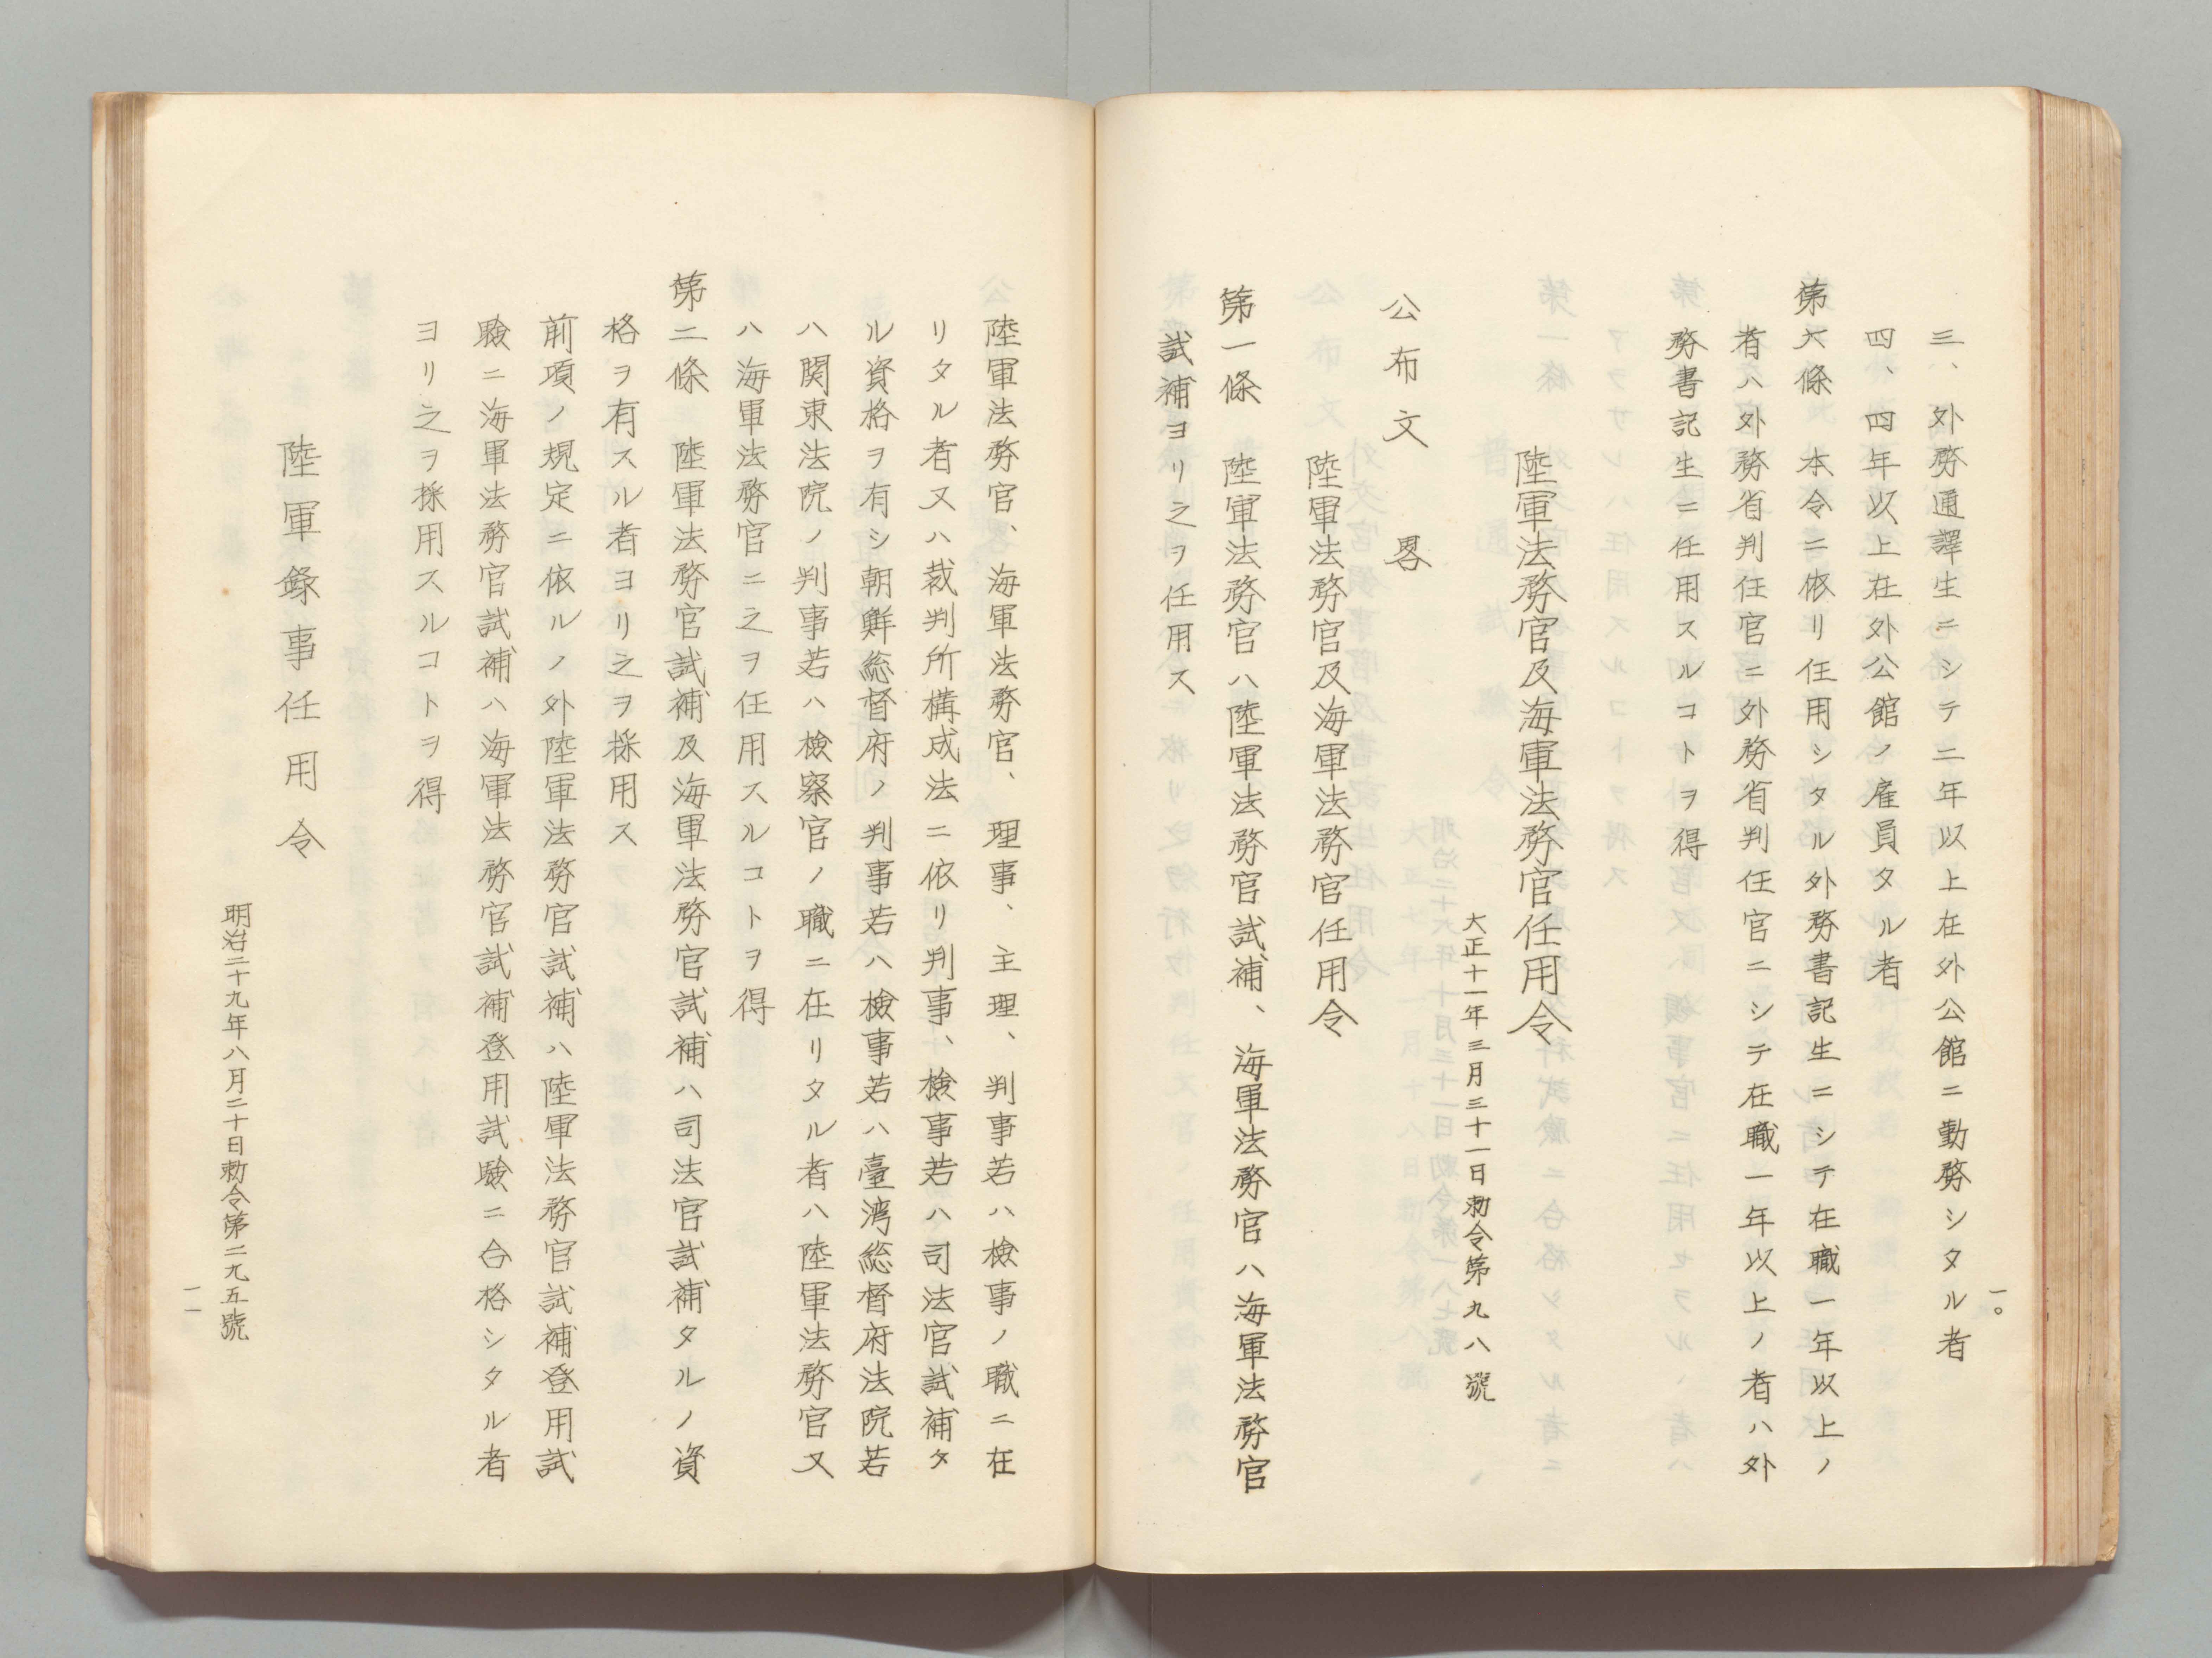 三、外務通譯生ニシテ二年以上在外公館ニ勤務シタル者
四、四年以上在外公館ノ雇員タル者
第六條　本令ニ依リ任用シタル外務書記生ニシテ在職一年以上ノ
者ハ外務省判任官ニ外務省判任官ニシテ在職一年以上ノ者ハ外
務書記生ニ任用スルコトヲ得
陸軍法務官及海軍法務官任用令
大正十一年三月三十一日勅令第九八號
公布文　畧
陸軍法務官及海軍法務官任用令
第一條　陸軍法務官ハ陸軍法務官試補、海軍法務官ハ海軍法務官
試補ヨリ之ヲ任用ス
一〇
陸軍法務官、海軍法務官、理事、主理、判事若ハ檢事ノ職ニ在
リタル者又ハ裁判所構成法ニ依リ判事、檢事若ハ司法官試補タ
ル資格ヲ有シ朝鮮総督府ノ判事若ハ檢事若ハ臺湾総督府法院若
ハ関東法院ノ判事若ハ檢察官ノ職ニ在リタル者ハ陸軍法務官又
ハ海軍法務官ニ之ヲ任用スルコトヲ得
第二條　陸軍法務官試補及海軍法務官試補ハ司法官試補タルノ資
格ヲ有スル者ヨリ之ヲ採用ス
前項ノ規定ニ依ルノ外陸軍法務官試補ハ陸軍法務官試補登用試
驗ニ海軍法務官試補ハ海軍法務官試補登用試驗ニ合格シタル者
ヨリ之ヲ採用スルコトヲ得
陸軍錄事任用令
明治二十九年八月二十日勅令第二九五號
一一